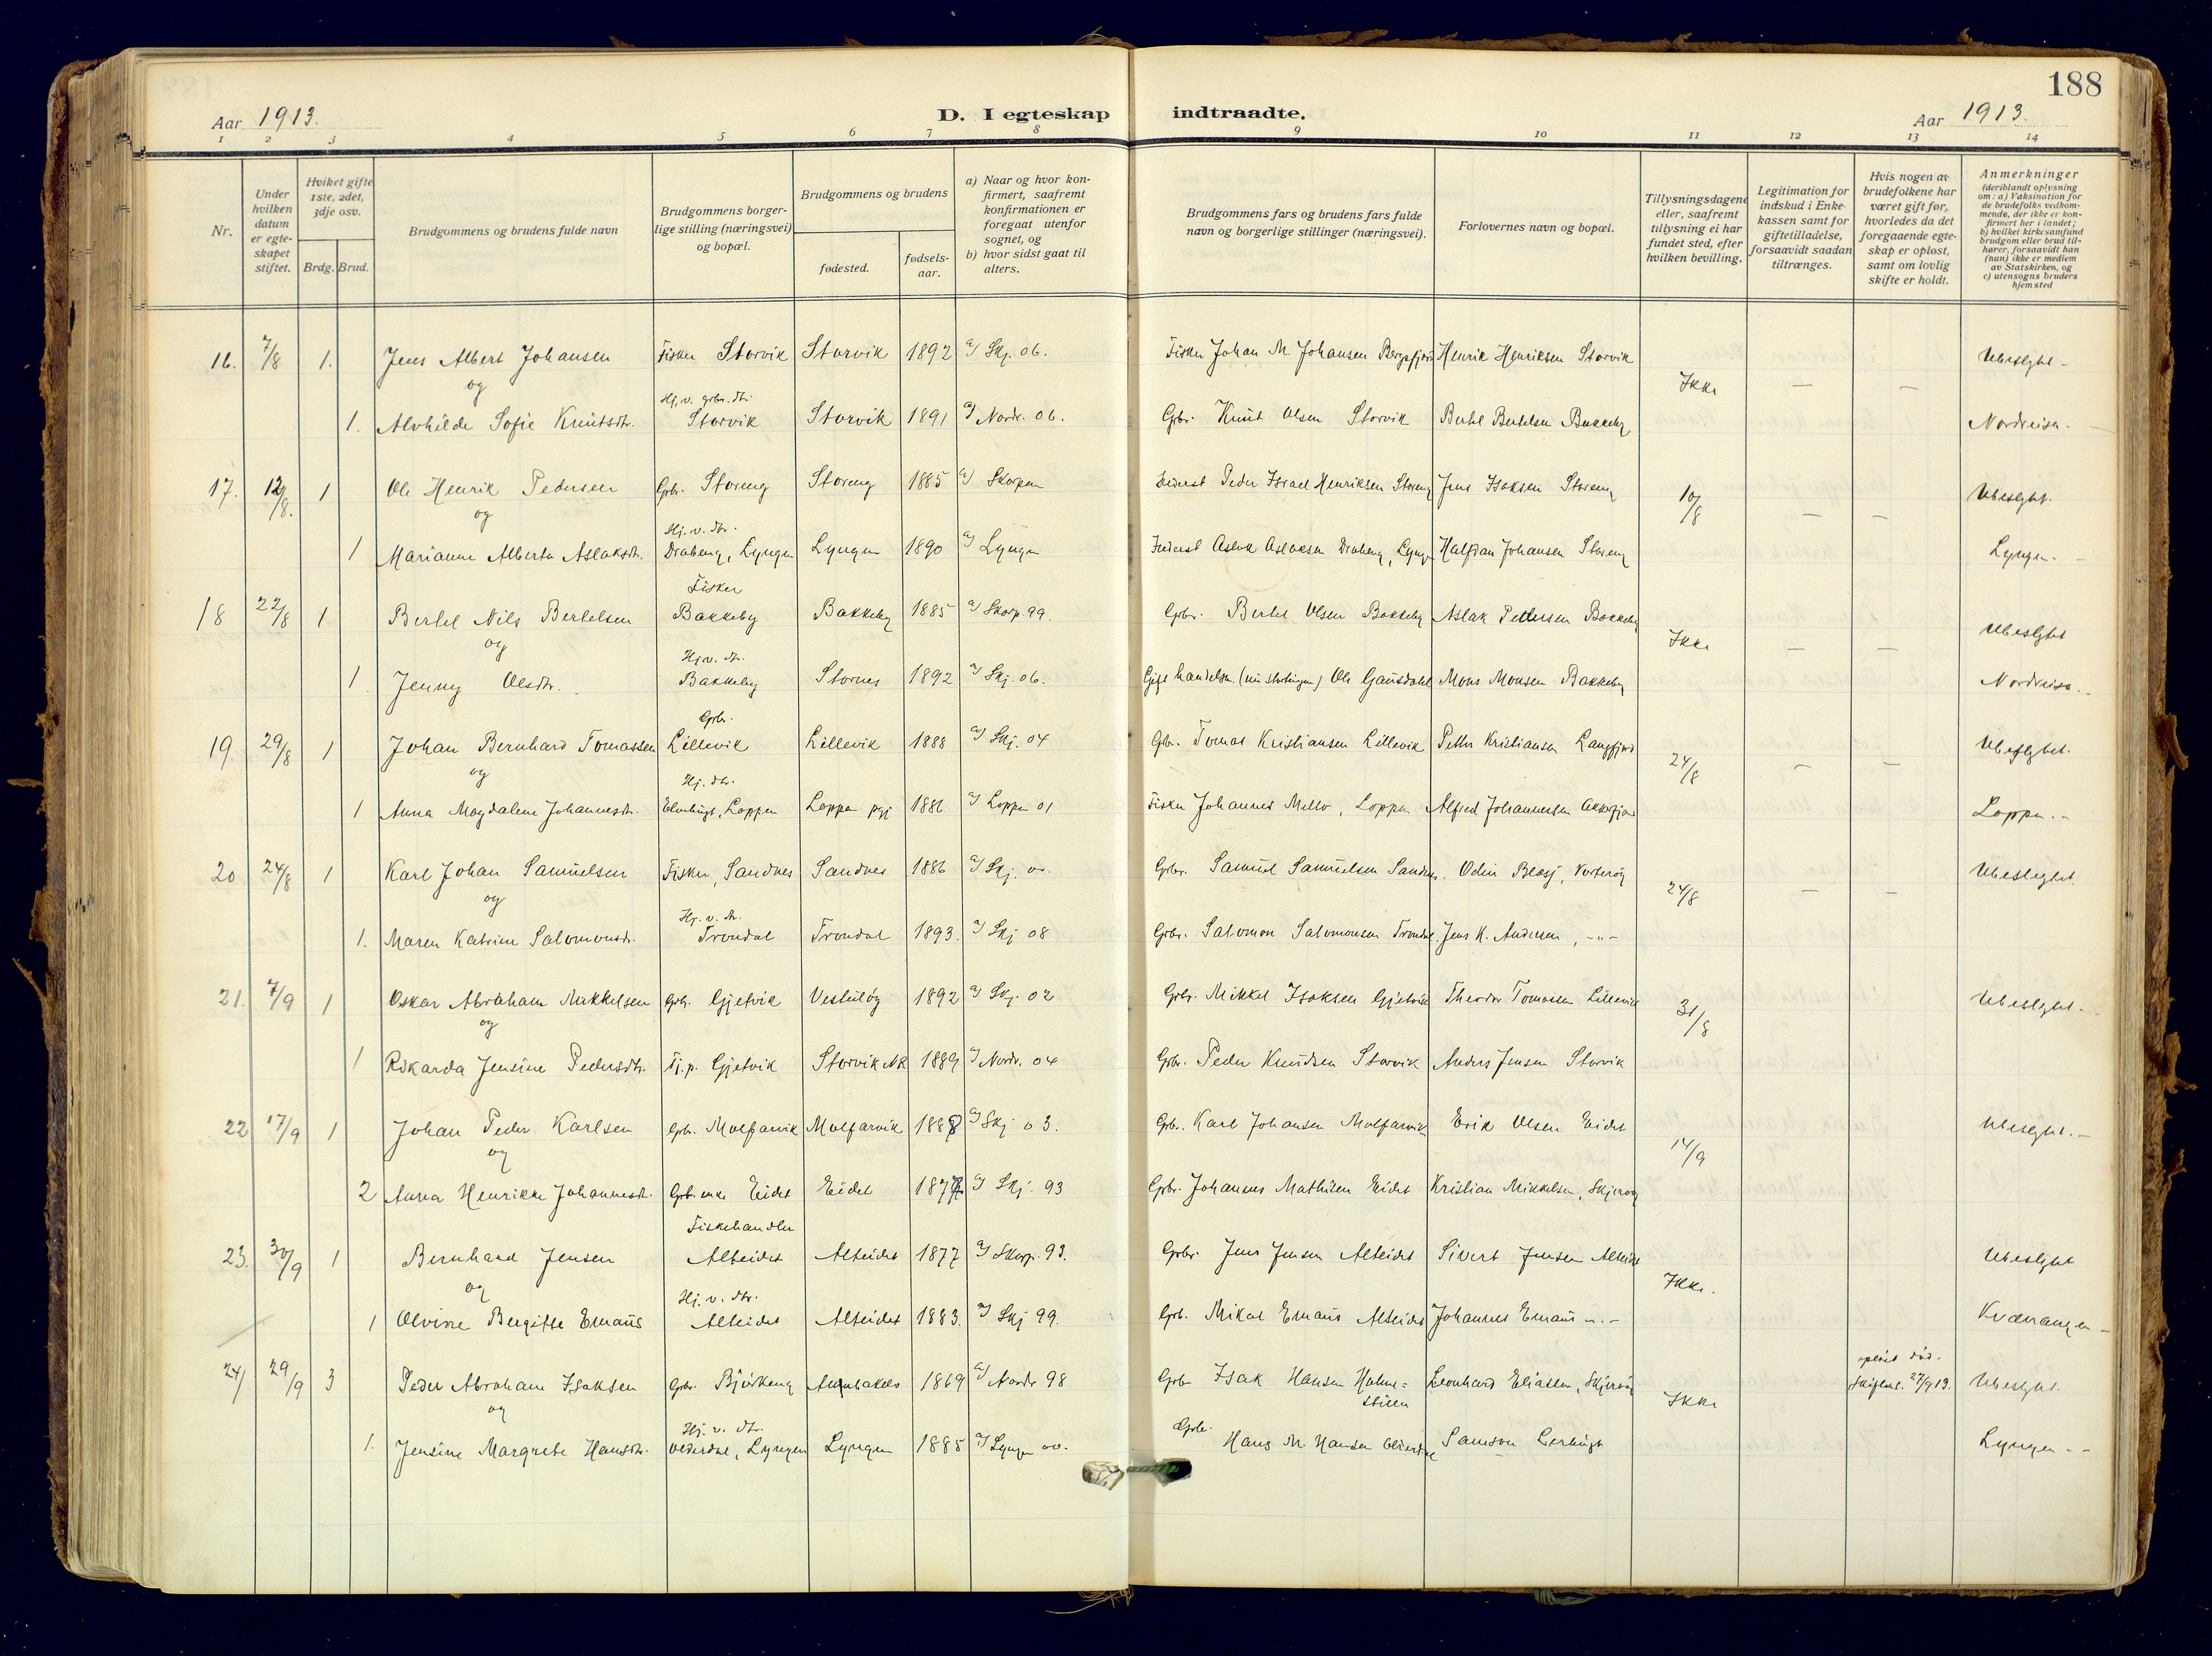 188
Aar 1913.
D. I egteskap indtraadte.
Aar 1913.
1 2 3 4 5 6 7 8 9 10 11 12 13 14
Nr.
Under hvilken datum er egteskapet stiftet.
Hvilket gifte 1ste, 2det, 3dje osv.
Brdg. Brud.
Brudgommens og brudens fulde navn
Brudgommens borgerlige stilling (næringsvei) og bopæl.
Brudgommens og brudens
fødested.
fødselsaar.
a) Naar og hvor konfirmert, saafremt konfirmationen er foregaat utenfor sognet, og
b) hvor sidst gaat til alters.
Brudgommens fars og brudens fars fulde navn og borgerlige stillinger (næringsvei).
Forlovernes navn og bopæl.
Tillysningsdagene eller, saafremt tillysning ei har fundet sted, efter hvilken bevilling.
Legitimation for indskud i Enkekassen samt for giftetilladelse, forsaavidt saadan tiltrænges.
Hvis nogen av brudefolkene har været gift før, hvorledes da det foregaaende egteskap er opløst, samt om lovlig skifte er holdt.
Anmerkninger (deriblandt oplysning om: a) Vaksination for de brudefolks vedkommende, der ikke er konfirmert her i landet; b) hvilket kirkesamfund brudgom eller brud tilhører, forsaavidt han (hun) ikke er medlem av Statskirken, og c) utensogns bruders hjemsted
16. 7/8 1. Jens Albert Johansen Fisker Storvik Storvik 1892 a) Skj. 06. Fisker Johan M Johansen Bergsfjord Henrik Henriksen Storvik Ikke — — Ubeslyht -
og
1. Alvhilde Sofie Knutsdtr. Hj. v. grbr. dtr. Storvik Storvik 1891 a) Nordr. 06. Grbr. Knut Olsen Storvik Bertel Bertelsen Bakkeby Nordreisa.
17. 12/8. 1 Ole Henrik Pedersen Grbr. Storeng Storeng 1885 a) Skorpen Peder Israel Henriksen Storeng Jens Isaksen Storeng 10/8 — — Ubeslyht.
og
1 Marianne Alberta Aslaksdtr. Hj. v. dtr. Drabeng, Lyngen Lyngen 1890 a) Lyngen Aslak Aslaksen Drabeng, Lyngen Halfdan Johansen Storeng Lyngen. -
18 22/8 1 Bertel Nils Bertelsen Fisker Bakkeby Bakkeby 1885 a) Skorp. 99. Grbr. Bertel Olsen Bakkeby Aslak Pettersen Bakkeby Ikke — — Ubeslyht
og
1. Jenny Olsdtr. Hj. v. dtr. Bakkeby Stornes 1892 a) Skj. 06. Ole Gausdahl Mons Monsen Bakkeby Nordreisa.
19. 29/8 1 Johan Bernhard Tomassen Grbr. Lillevik Lillevik 1888 a) Skj. 04 Grbr. Tomas Kristiansen Lillevik Petter Kristiansen Langfjord 24/8 — — Ubeslyhet.
og
1 Anna Magdalene Johannesdtr. Hj. dtr. Loppen Loppen pgj 1886 a) Loppen 01 Fisker Johannes Mello, Loppen Alfred Johannessen Loppen. -
20 24/8 1 Karl Johan Samuelsen Fisker, Sandnes Sandnes 1886 a) Skj. 00. Grbr. Samuel Samuelsen Sandnes. Odin Blæsj, Vorterøy 24/8 — — Ubeslyght.
og
1. Maren Katrine Salomonsdtr. Hj. v. dtr. Trondal Trondal 1893. a) Skj 08 Grbr. Salomon Salomonsen Trondal. Jens K. Andersen, -"-
21. 7/9 1 Oskar Abraham Mikkelsen Grbr. Gjetvik Vesterøy 1892 a) Skj. 02 Grbr. Mikkel Isaksen Gjetvik Theodor Tomassen Lillevik 31/8 Ubeslyht -
og
1 Rikarda Jensine Pedersdtr. Tj. p. Gjetvik Storvik NR 1889 a) Nordr. 04 Grbr. Peder Knudsen Storvik Anders Jensen Storvik
22 17/9 1 Johan Peder Karlsen Grbr. Molfarvik Molfarvik 1888 a) Skj 03. Grbr. Karl Johansen Molfarvik Erik Olsen Eidet 14/9 Ubeslyht. -
og
2 Anna Henrikke Johannesdtr. Grbr. enke Eidet Eidet 1877 a) Skj. 93 Grbr. Johannes Mathisen Eidet Kristian Mikkelsen, Skjervøy
23. 30/9 1 Bernhard Jensen Fiskehandler Alteidet Alteidet 1877 a) Skorp. 93. Grbr. Jens Jensen Alteidet Sivert Jensen Alteidet Ikke. Ubeslyht
og
1 Olvine Bergitte Emaus Hj. v. dtr. Alteidet Alteidet 1883. a) Skj 99. Grb. Mikal Emaus Alteidet Johannes Emaus -"- Kvænangen -
24/ 29/9 3 Peder Abraham Isaksen Grbr. Björkeng 1869 a) Nordr 98 Grbr Isak Hansen Leonhard Eliassen, Skjervøy Ikke opløst død. Skifteat. 27/9 13. Ubeslyht.
og
1. Jensine Margrete Hansdtr. Hj. v. dtr. Olderdal, Lyngen Lyngen 1885 a) Lyngen 00. Grbr. Hans M. Hansen Olderdal Samson Lerbugt Lyngen - -